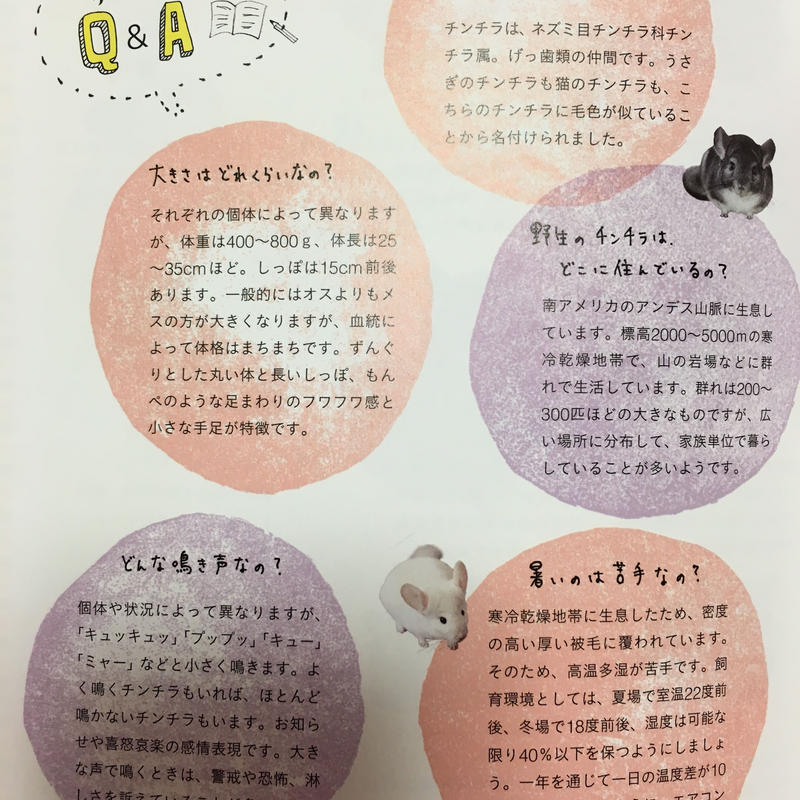 Q&A
チンチラは、ネズミ目チンチラ科チン
チラ属。げっ歯類の仲間です。うさ
ぎのチンチラも猫のチンチラも、こ
ちらのチンチラに毛色が似ているこ
とから名付けられました。
大きさはどれくらいなの?
それぞれの個体によって異なります
が、体重は400〜800g、体長は25
〜35cmほど。しっぽは15cm前後
あります。一般的にはオスよりもメ
スの方が大きくなりますが、血統に
よって体格はまちまちです。ずんぐ
りとした丸い体と長いしっぽ、もん
ぺのような足まわりのフワフワ感と
小さな手足が特徴です。
野生のチンチラは、
どこに住んでいるの?
南アメリカのアンデス山脈に生息し
ています。標高2000〜5000mの寒
冷乾燥地帯で、山の岩場などに群
れで生活しています。群れは200〜
300匹ほどの大きなものですが、広
い場所に分布して、家族単位で暮ら
していることが多いようです。
どんな鳴き声なの?
個体や状況によって異なりますが、
「キュッキュッ」「プップッ」「キュー」
「ミャー」などと小さく鳴きます。よ
く鳴くチンチラもいれば、ほとんど
鳴かないチンチラもいます。お知ら
せや喜怒哀楽の感情表現です。大き
な声で鳴くときは、警戒や恐怖、淋
しさを訴えている
暑いのは苦手なの?
寒冷乾燥地帯に生息したため、密度
の高い厚い被毛に覆われています。
そのため、高温多湿が苦手です。飼
育環境としては、夏場で室温22度前
後、冬場で18度前後、湿度は可能な
限り40%以下を保つようにしましょ
う。一年を通じて一日の温度差が10
エアコン